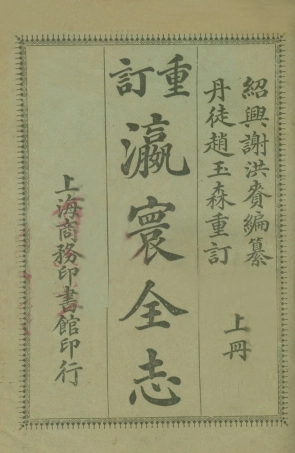 紹興謝洪賚編纂
丹徒趙玉森重訂
上冊
重訂
瀛寰全志
上海商務印書館印行